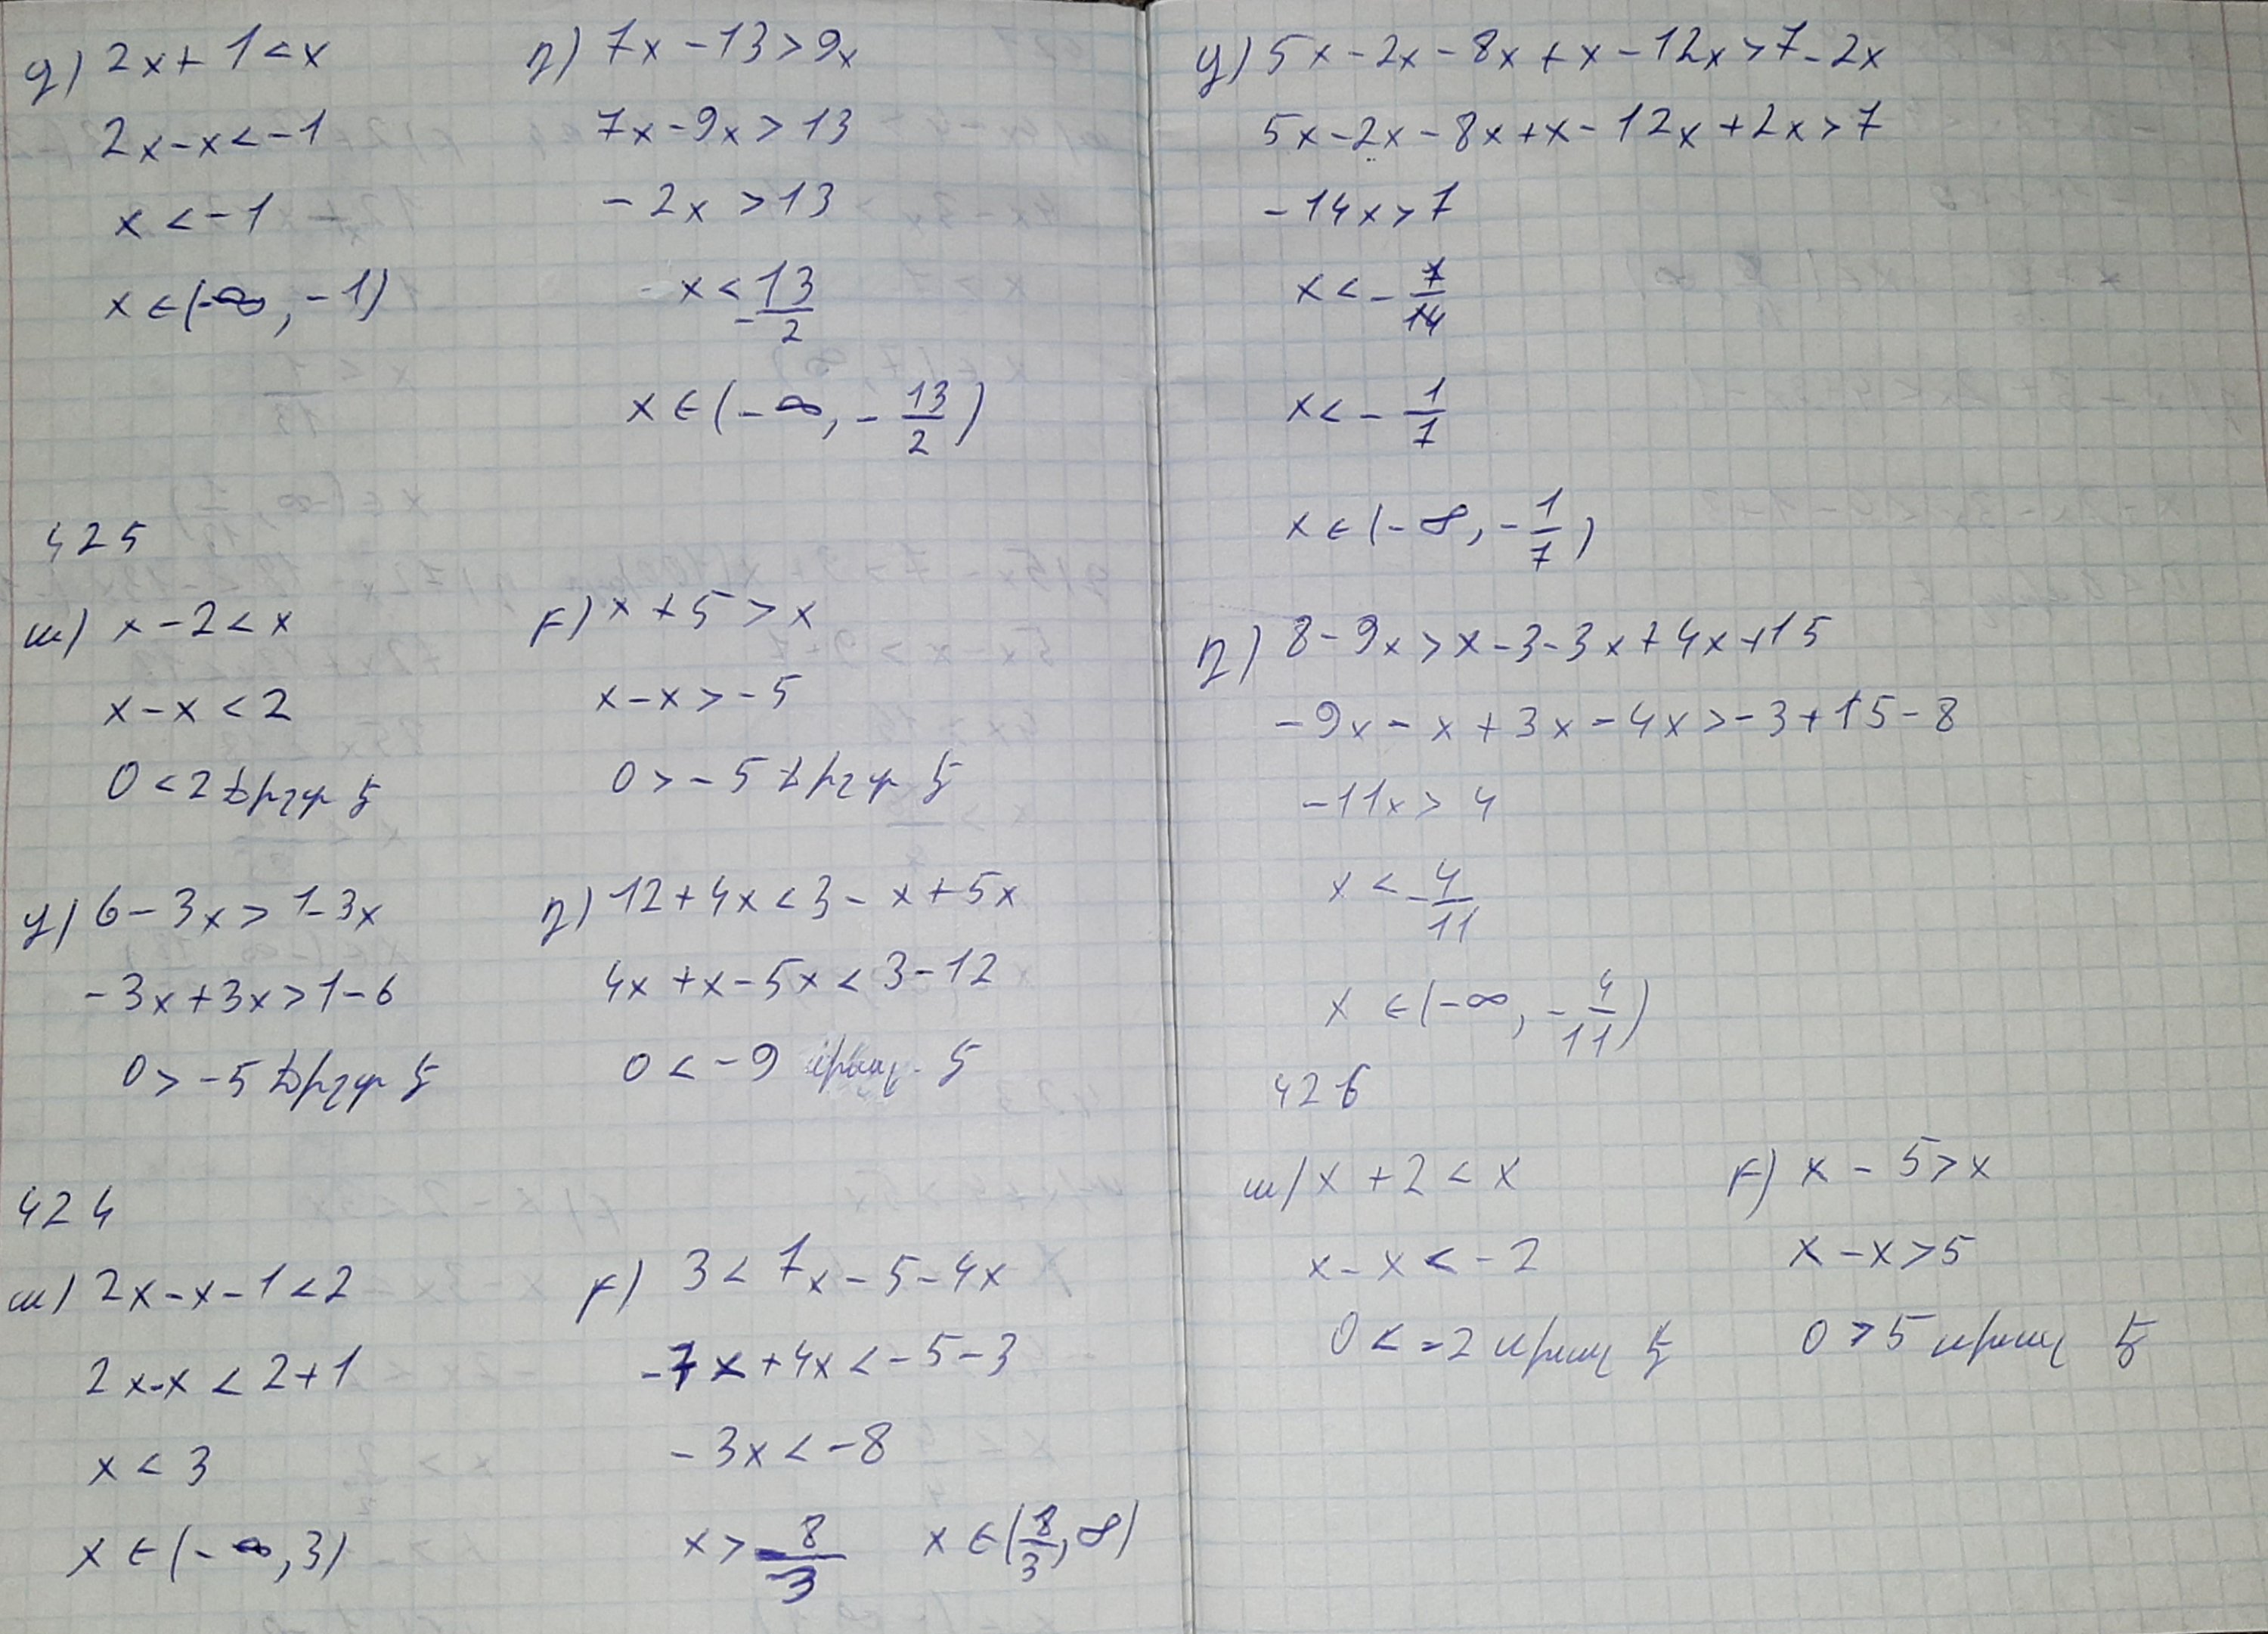 գ) 2x + 1 < x
2x - x < -1
x < -1
x ∈ (-∞, -1)
դ) 7x - 13 > 9x
7x - 9x > 13
-2x > 13
x < -13/2
x ∈ (-∞, -13/2)
425
ա) x - 2 < x
x - x < 2
0 < 2 ճիշտ է
բ) x + 5 > x
x - x > -5
0 > -5 ճիշտ է
գ) 6 - 3x > 1 - 3x
-3x + 3x > 1 - 6
0 > -5 ճիշտ է
դ) 12 + 4x < 3 - x + 5x
4x + x - 5x < 3 - 12
0 < -9 սխալ է
424
ա) 2x - x - 1 < 2
2x - x < 2 + 1
x < 3
x ∈ (-∞, 3)
բ) 3 < 7x - 5 - 4x
-7x + 4x < -5 - 3
-3x < -8
x > 8/3 x ∈ (8/3, ∞)
գ) 5x - 2x - 8x + x - 12x > 7 - 2x
5x - 2x - 8x + x - 12x + 2x > 7
-14x > 7
x < -7/14
x < -1/7
x ∈ (-∞, -1/7)
դ) 8 - 9x > x - 3 - 3x + 4x + 15
-9x - x + 3x - 4x > -3 + 15 - 8
-11x > 4
x < -4/11
x ∈ (-∞, -4/11)
426
ա) x + 2 < x
x - x < -2
0 < -2 սխալ է
բ) x - 5 > x
x - x > 5
0 > 5 սխալ է